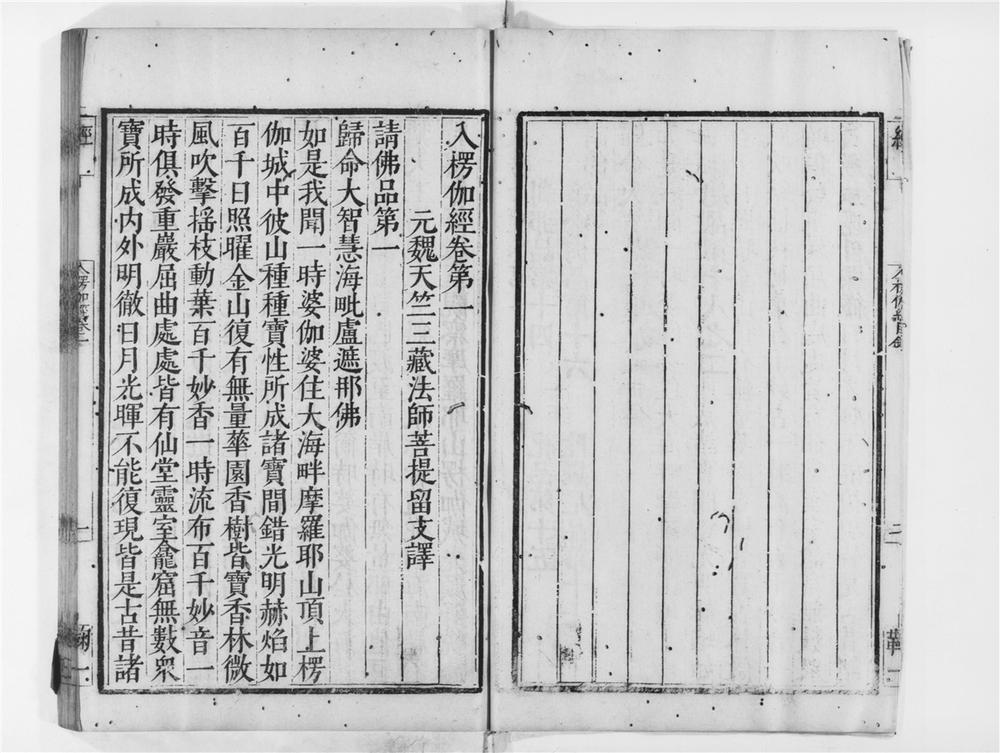 入楞伽經卷第一
元魏天竺三藏法師菩提留支譯
請佛品第一
歸命大智慧海毗盧遮那佛
如是我聞一時婆伽婆住大海畔摩羅耶山頂上楞
伽城中彼山種種寶性所成諸寶間錯光明赫焰如
百千日照曜金山復有無量華園香樹皆寶香林微
風吹擊搖枝動葉百千妙香一時流布百千妙音一
時俱發重巖屈曲處處皆有仙堂靈室龕窟無數衆
寶所成内外明徹日月光暉不能復現皆是古昔諸
經
入楞伽經卷一
二